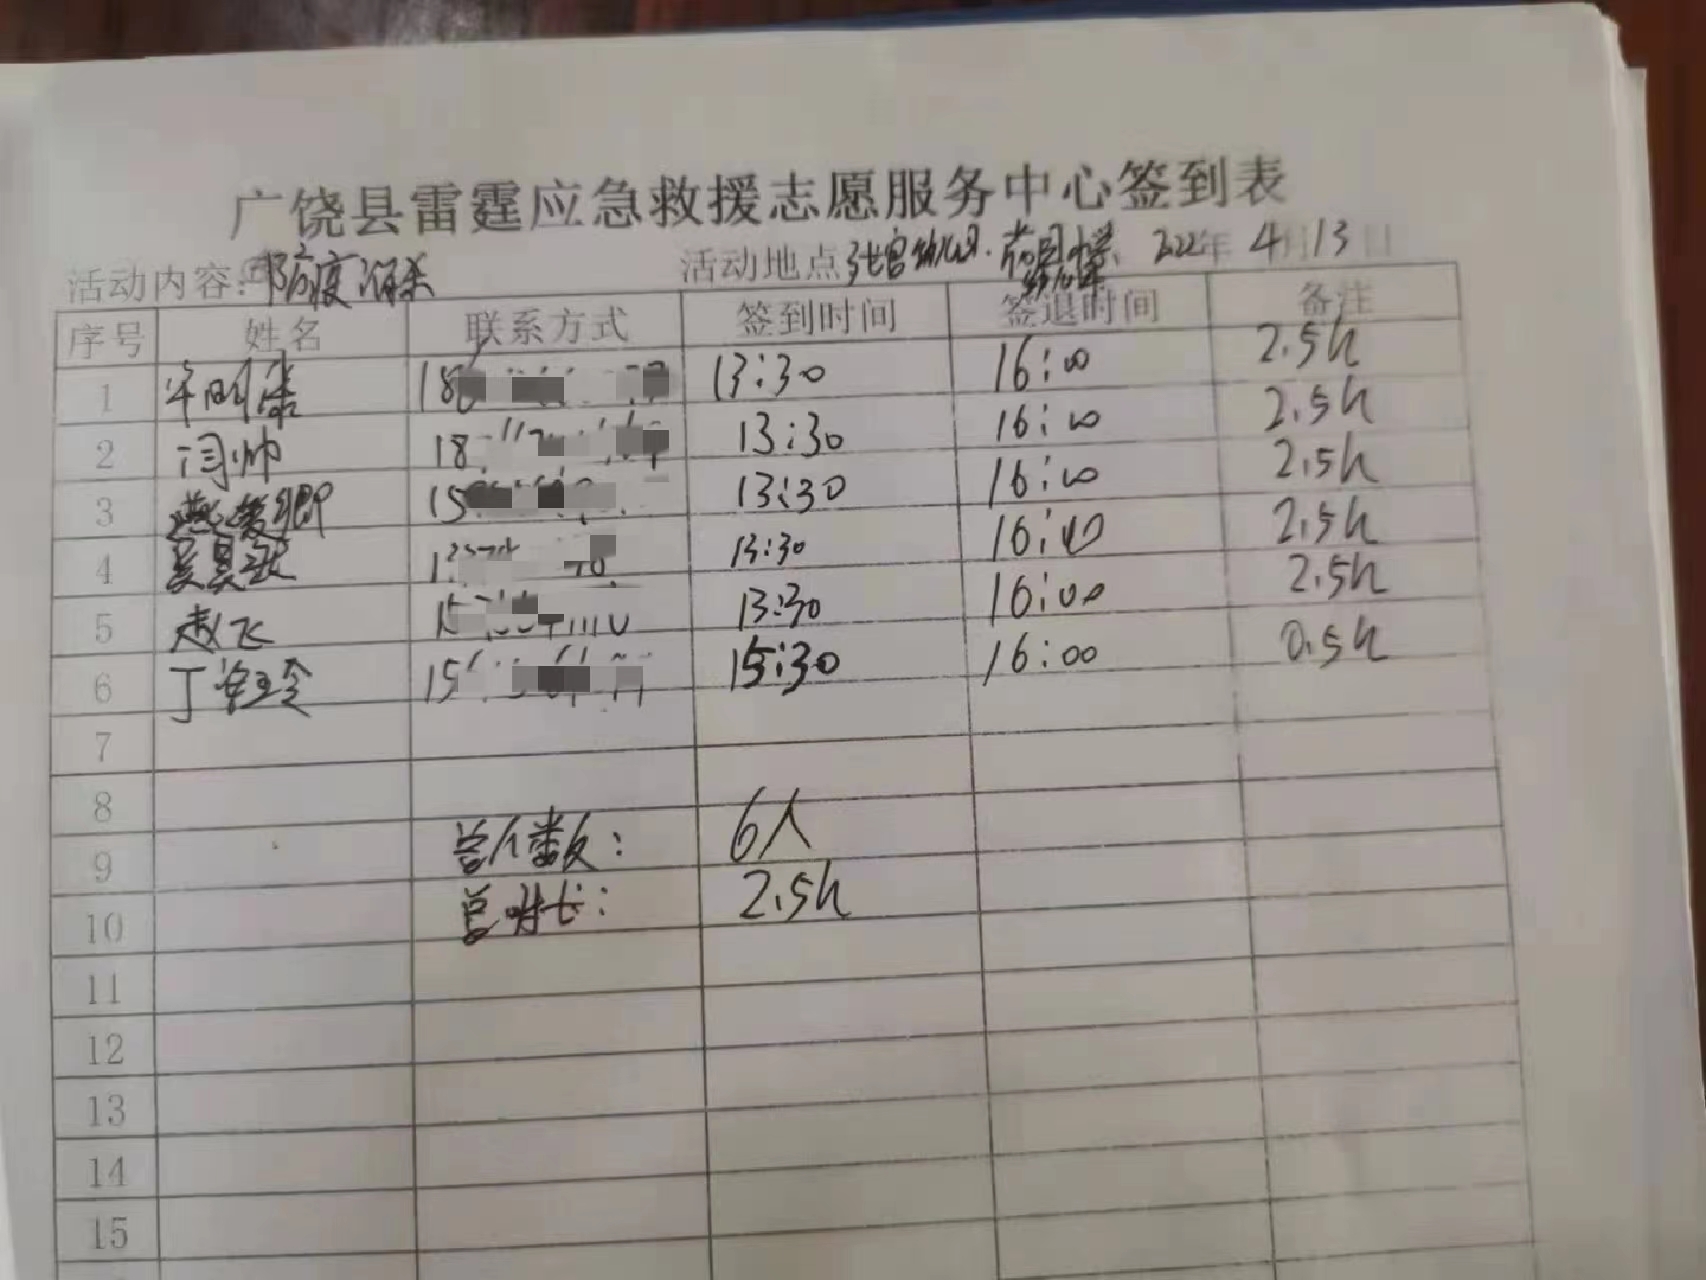 广饶县雷霆应急救援志愿服务中心签到表
活动内容:防疫消杀 活动地点 2022年 4月13日
序号 姓名 联系方式 签到时间 签退时间 备注
1 18 13:30 16:00 2.5h
2 闫帅 18 13:30 16:00 2.5h
3 15 13:30 16:00 2.5h
4 13:30 16:00 2.5h
5 赵飞 13:30 16:00 2.5h
6 丁 15 15:30 16:00 0.5h
7
8
9 总人数: 6人
10 总时长: 2.5h
11
12
13
14
15